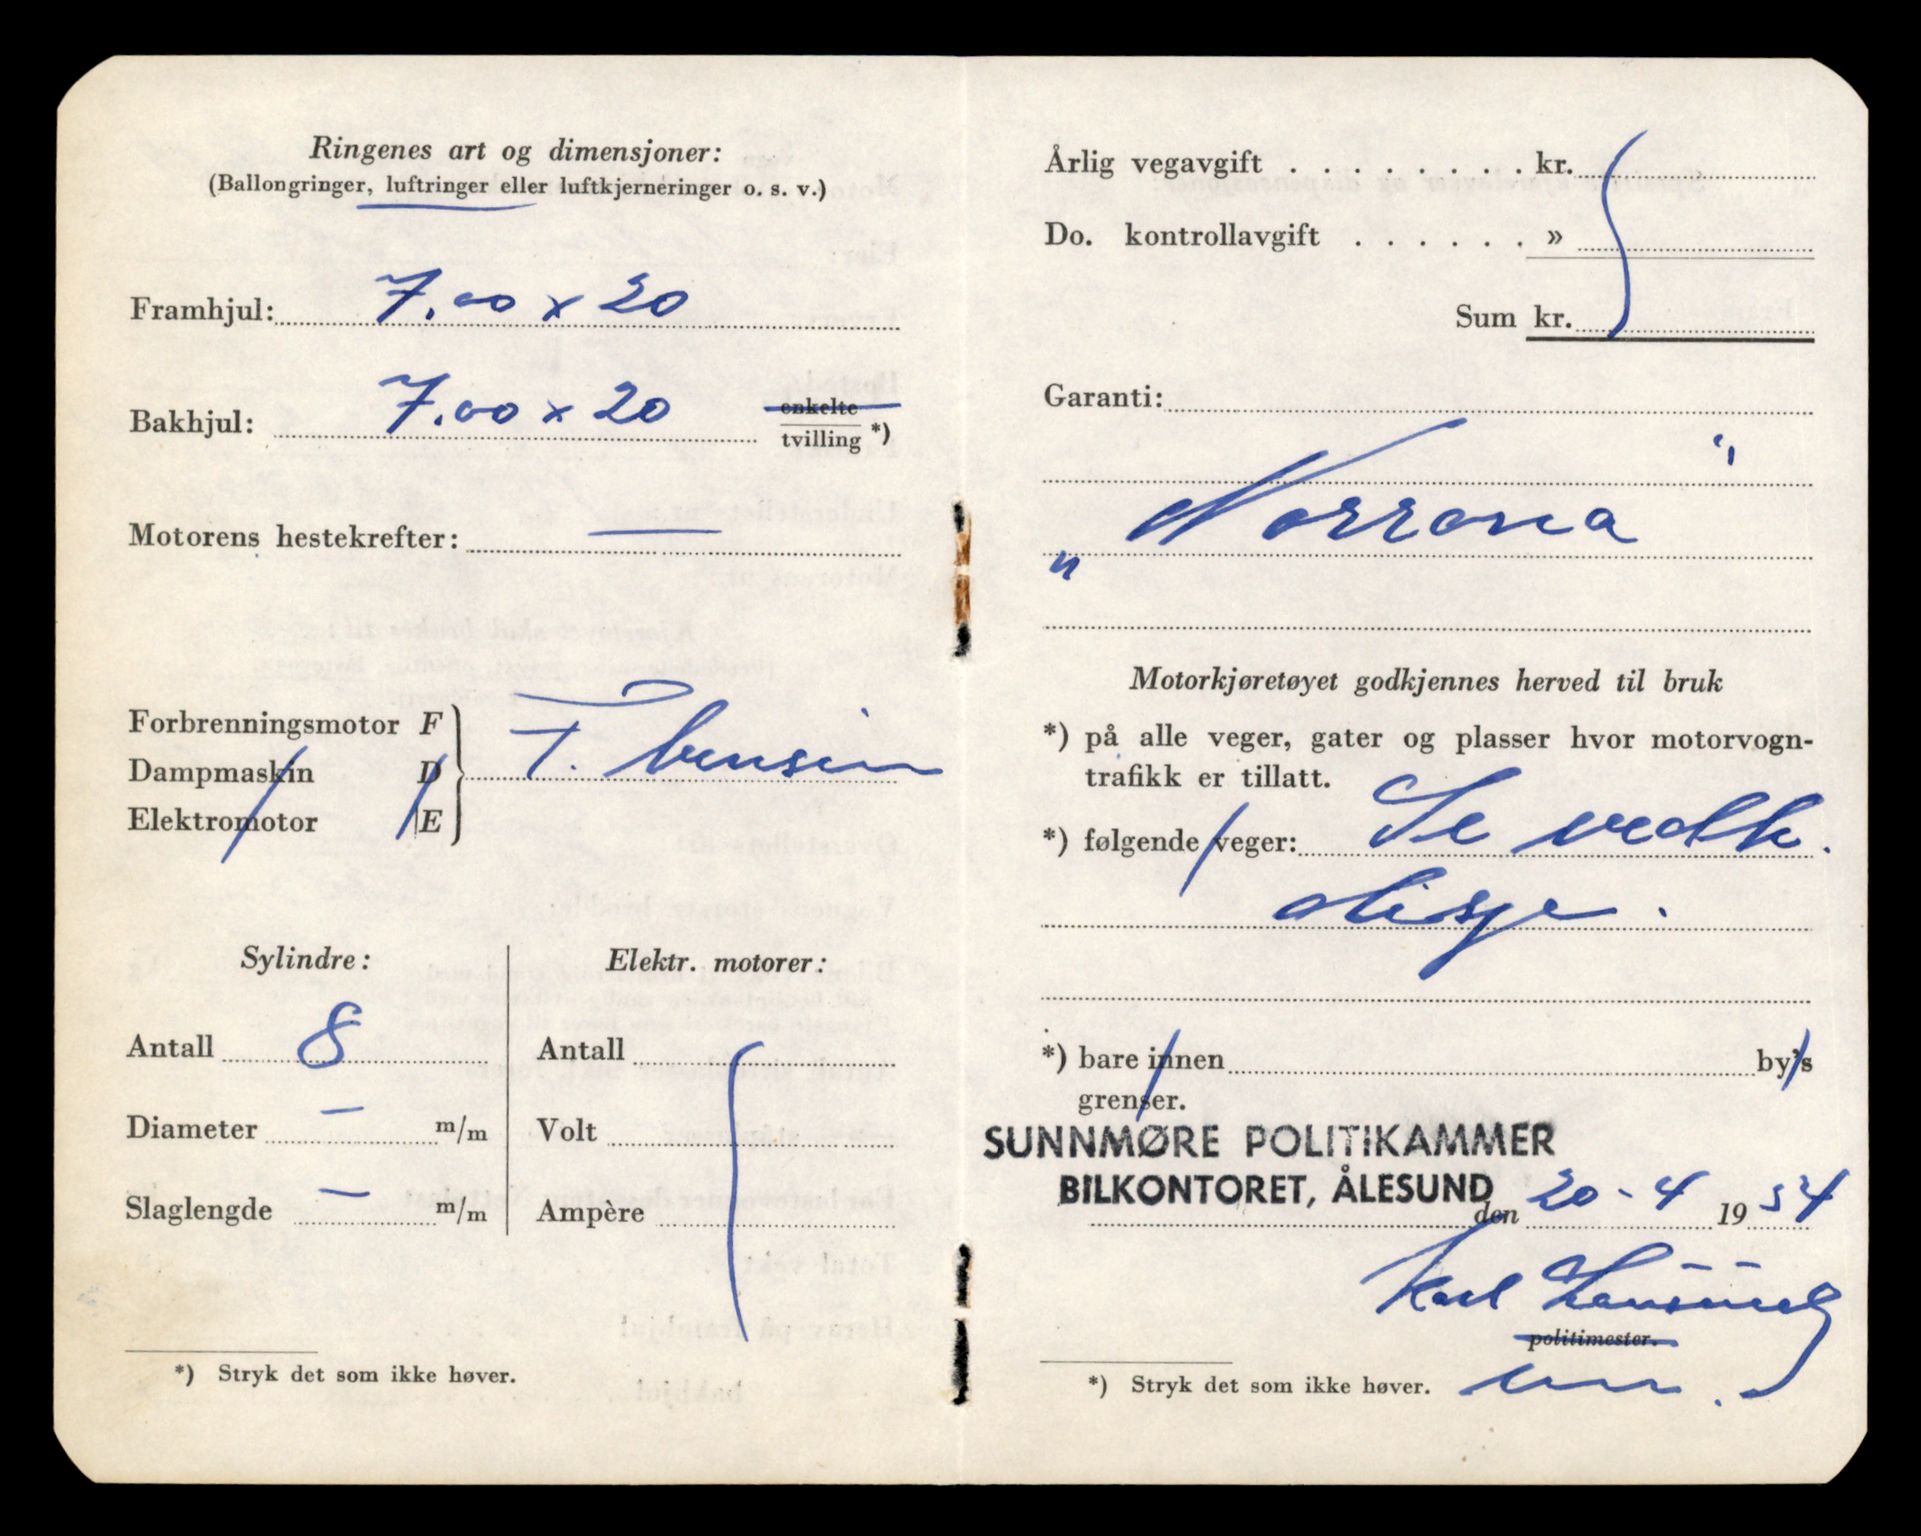 Ringenes art og dimensjoner:
(Ballongringer, luftringer eller luftkjerneringer o. s. v.)
Framhjul: 7.00 x 20
Bakhjul: 7.00 x 20 enkelte
tvilling *)
Motorens hestekrefter: —
Forbrenningsmotor F
Dampmaskin D F. bensin
Elektromotor E
Sylindre:
Antall 8
Diameter — m/m
Slaglengde — m/m
Elektr. motorer:
Antall
Volt
Ampère
*) Stryk det som ikke høver.
Årlig vegavgift . . . . . . . . kr.
Do. kontrollavgift . . . . . . »
Sum kr.
Garanti:
„Norrona"
Motorkjøretøyet godkjennes herved til bruk
*) på alle veger, gater og plasser hvor motorvogn-
trafikk er tillatt.
*) følgende veger: Se vedk.
disp.
*) bare innen by's
grenser.
SUNNMØRE POLITIKAMMER
BILKONTORET, ÅLESUND
den 20-4 1954
Karl
politimester.
*) Stryk det som ikke høver.